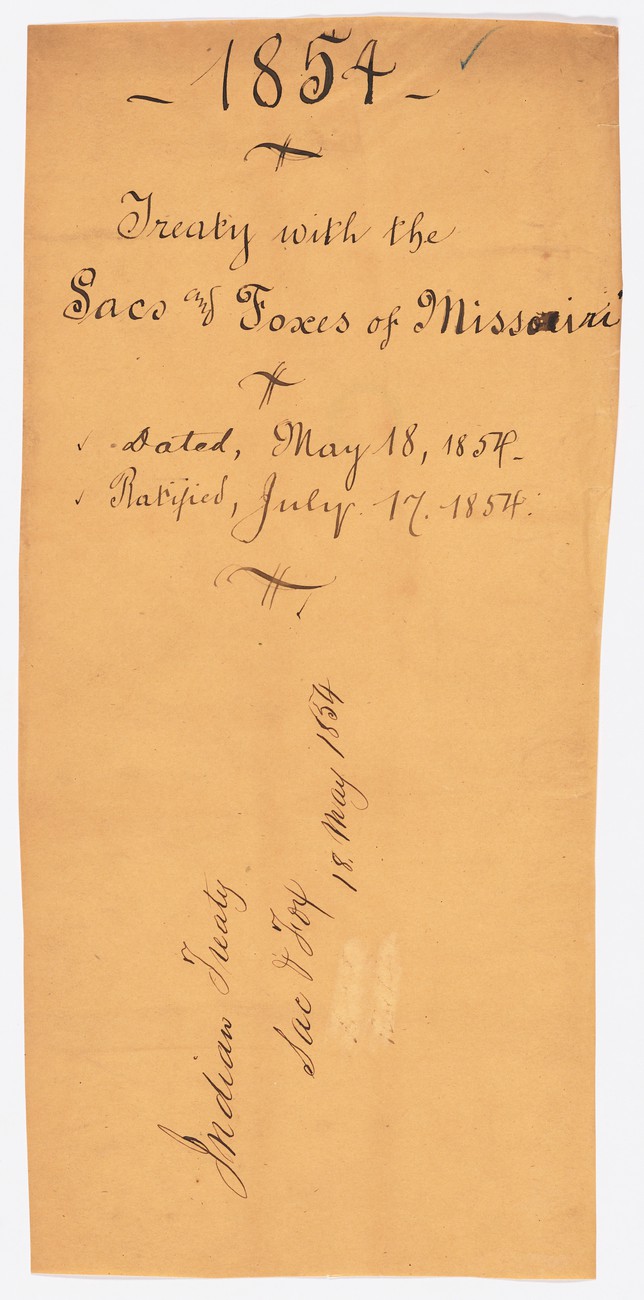 - 1854 -
Treaty with the
Sacs and Foxes of Missouri
Dated, May 18, 1854.
Ratified, July 17. 1854.
Indian Treaty
Sac & Fox
18. May 1854